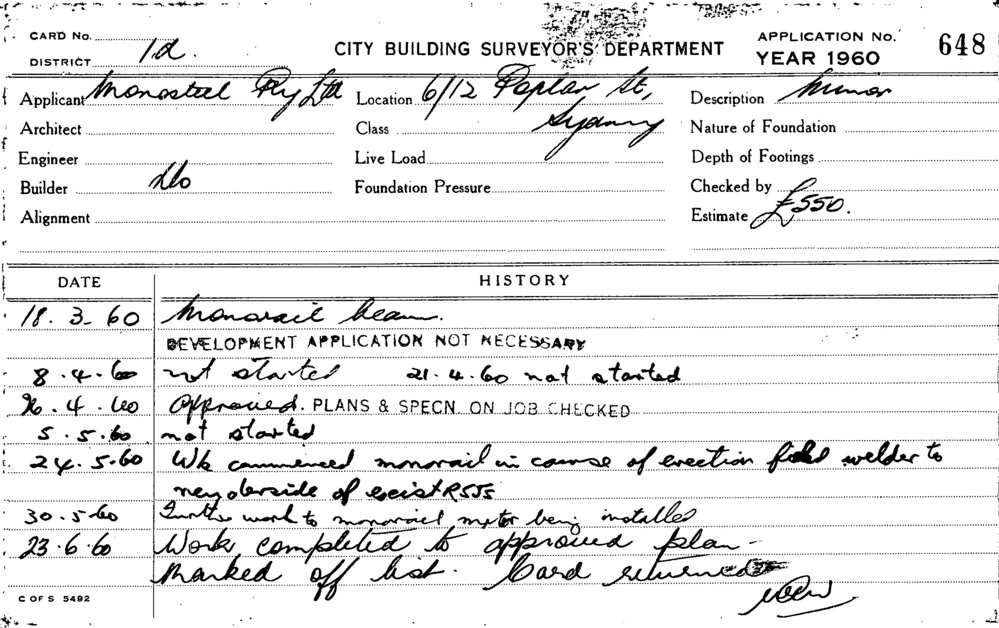 CARD No.
DISTRICT 1d.
CITY BUILDING SURVEYOR'S DEPARTMENT
APPLICATION No. 648
YEAR 1960
Applicant Monosteel Pty Ltd Location 6/12 Poplar St, Sydney Description Minor
Architect Class Nature of Foundation
Engineer Live Load Depth of Footings
Builder do Foundation Pressure Checked by
Alignment Estimate £550.
DATE HISTORY
18.3.60 Monorail beam.
DEVELOPMENT APPLICATION NOT NECESSARY
8.4.60 not started 21.4.60 not started
26.4.60 Approved. PLANS & SPECN. ON JOB CHECKED
5.5.60 not started
24.5.60 Wk commenced monorail in course of erection welder to
underside of exist RSJs
30.5.60 Further work to monorail motor being installed
23.6.60 Work completed to approved plan -
Marked off list. Card returned
C OF S 5492